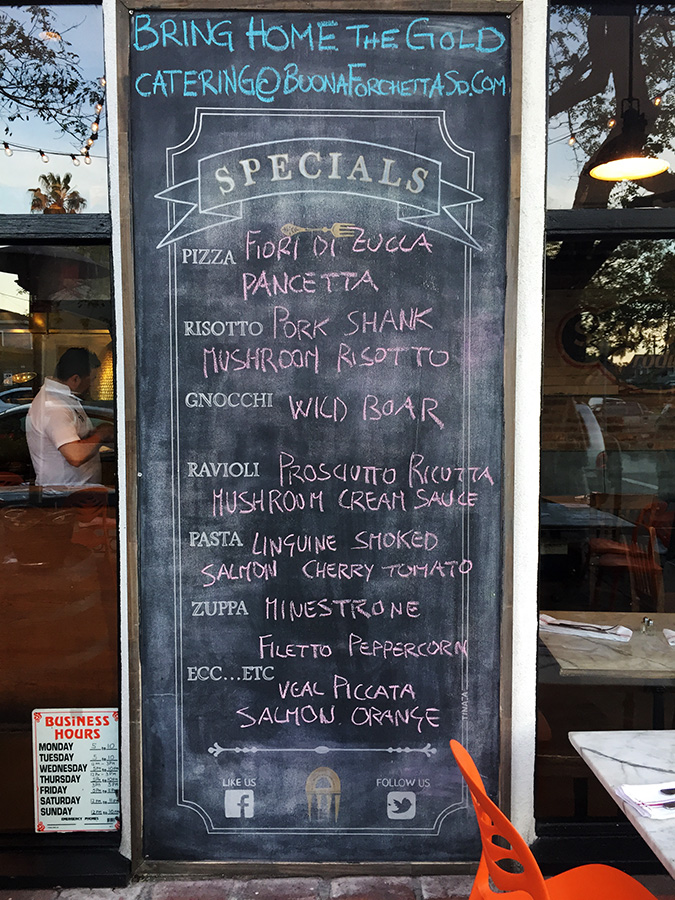 BRING HOME THE GOLD
CATERING@BUONAFORCHETTASD.COM
SPECIALS
PIZZA FIORI DI ZUCCA
PANCETTA
RISOTTO PORK SHANK
MUSHROOM RISOTTO
GNOCCHI WILD BOAR
RAVIOLI PROSCIUTTO RICUTTA
MUSHROOM CREAM SAUCE
PASTA LINGUINE SMOKED
SALMON CHERRY TOMATO
ZUPPA MINESTRONE
FILETTO PEPPERCORN
ECC...ETC
VEAL PICCATA
SALMON. ORANGE
LIKE US
FOLLOW US
BUSINESS
HOURS
MONDAY 5 10
TUESDAY 5 10
WEDNESDAY
THURSDAY
FRIDAY
SATURDAY
SUNDAY
EMERGENCY PHONES